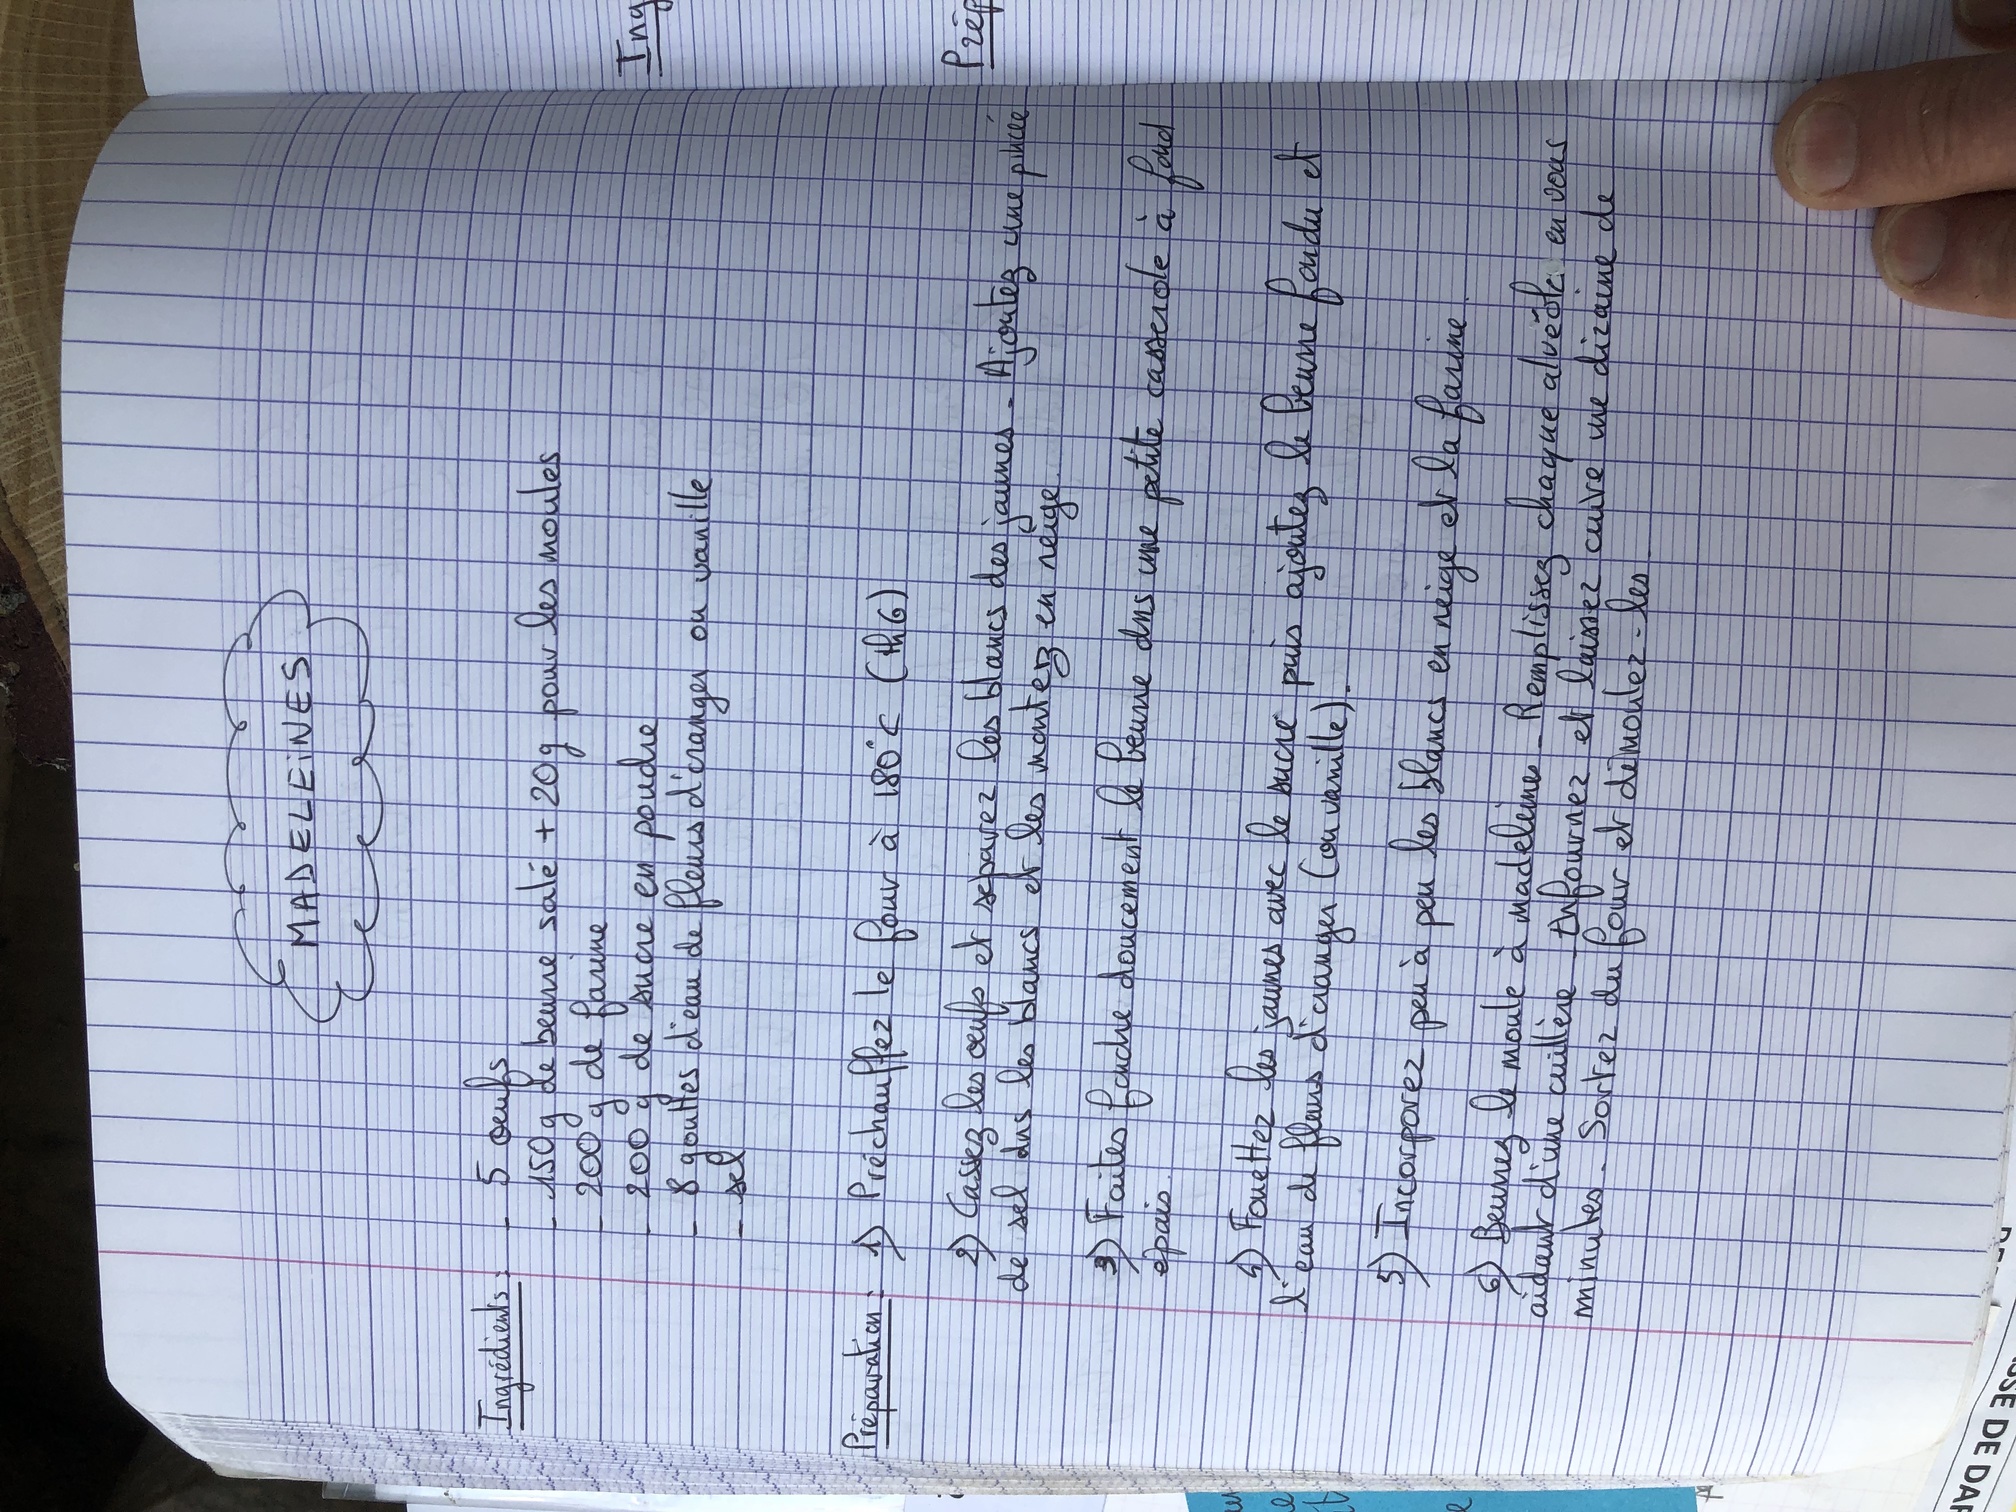 MADELEINES
Ingrédients : - 5 oeufs
- 150g de beurre salé + 20g pour les moules
- 200g de farine
- 200g de sucre en poudre
- 8 gouttes d'eau de fleurs d'oranger ou vanille
- sel
Préparation : 1) Préchauffez le four à 180°C (th6)
2) Cassez les oeufs et séparez les blancs des jaunes - Ajoutez une pincée
de sel dans les blancs et les montez en neige.
3) Faites fondre doucement le beurre dns une petite casserole à fond
épais.
4) Fouettez les jaunes avec le sucre puis ajoutez le beurre fondu et
l'eau de fleurs d'oranger (ou vanille).
5) Incorporez peu à peu les blancs en neige et la farine.
6) Beurrez le moule à madeleines - Remplissez chaque alvéole en vous
aidant d'une cuillère - Enfournez et laissez cuire une dizaine de
minutes. Sortez du four et démoulez-les.
Ing
Prép
SSE DE DAR